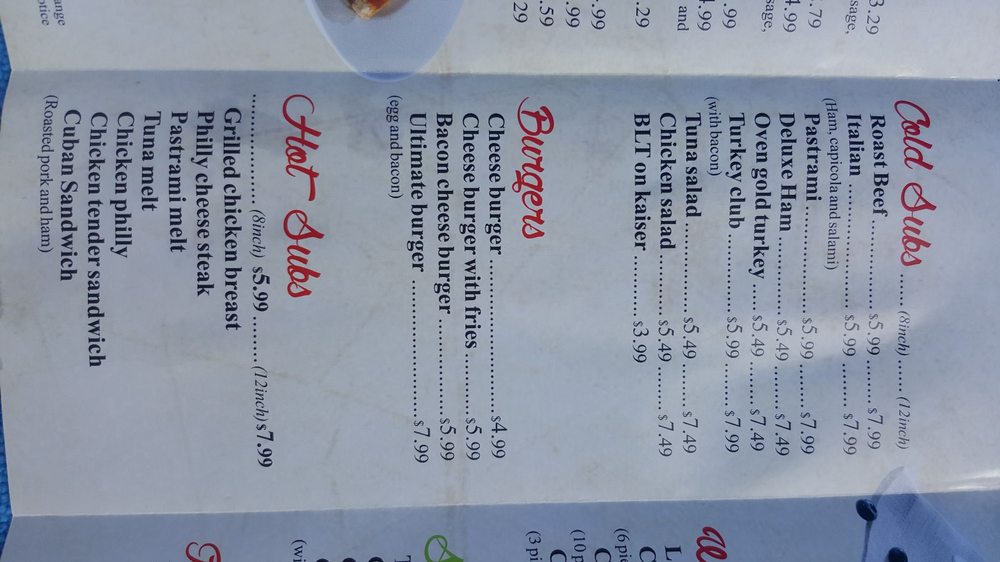 3.29
sage,
.79
4.99
sage,
.99
4.99
and
.29
.99
.99
.59
.29
ange
otice
Cold Subs ...... (8inch) ...... (12inch)
Roast Beef ............... $5.99 ........ $7.99
Italian .................... $5.99 ........ $7.99
(Ham, capicola and salami)
Pastrami ................. $5.99 ........ $7.99
Deluxe Ham ............ $5.49 ........ $7.49
Oven gold turkey ..... $5.49 ........ $7.49
Turkey club ............. $5.99 ........ $7.99
(with bacon)
Tuna salad .............. $5.49 ........ $7.49
Chicken salad .......... $5.49 ........ $7.49
BLT on kaiser .......... $3.99
Burgers
Cheese burger ........................ $4.99
Cheese burger with fries .......... $5.99
Bacon cheese burger ............... $5.99
Ultimate burger ...................... $7.99
(egg and bacon)
Hot Subs
................ (8inch) $5.99 ......... (12inch) $7.99
Grilled chicken breast
Philly cheese steak
Pastrami melt
Tuna melt
Chicken philly
Chicken tender sandwich
Cuban Sandwich
(Roasted pork and ham)
L
C
(6 pie
C
(10 p
C
(3 pi
(wi